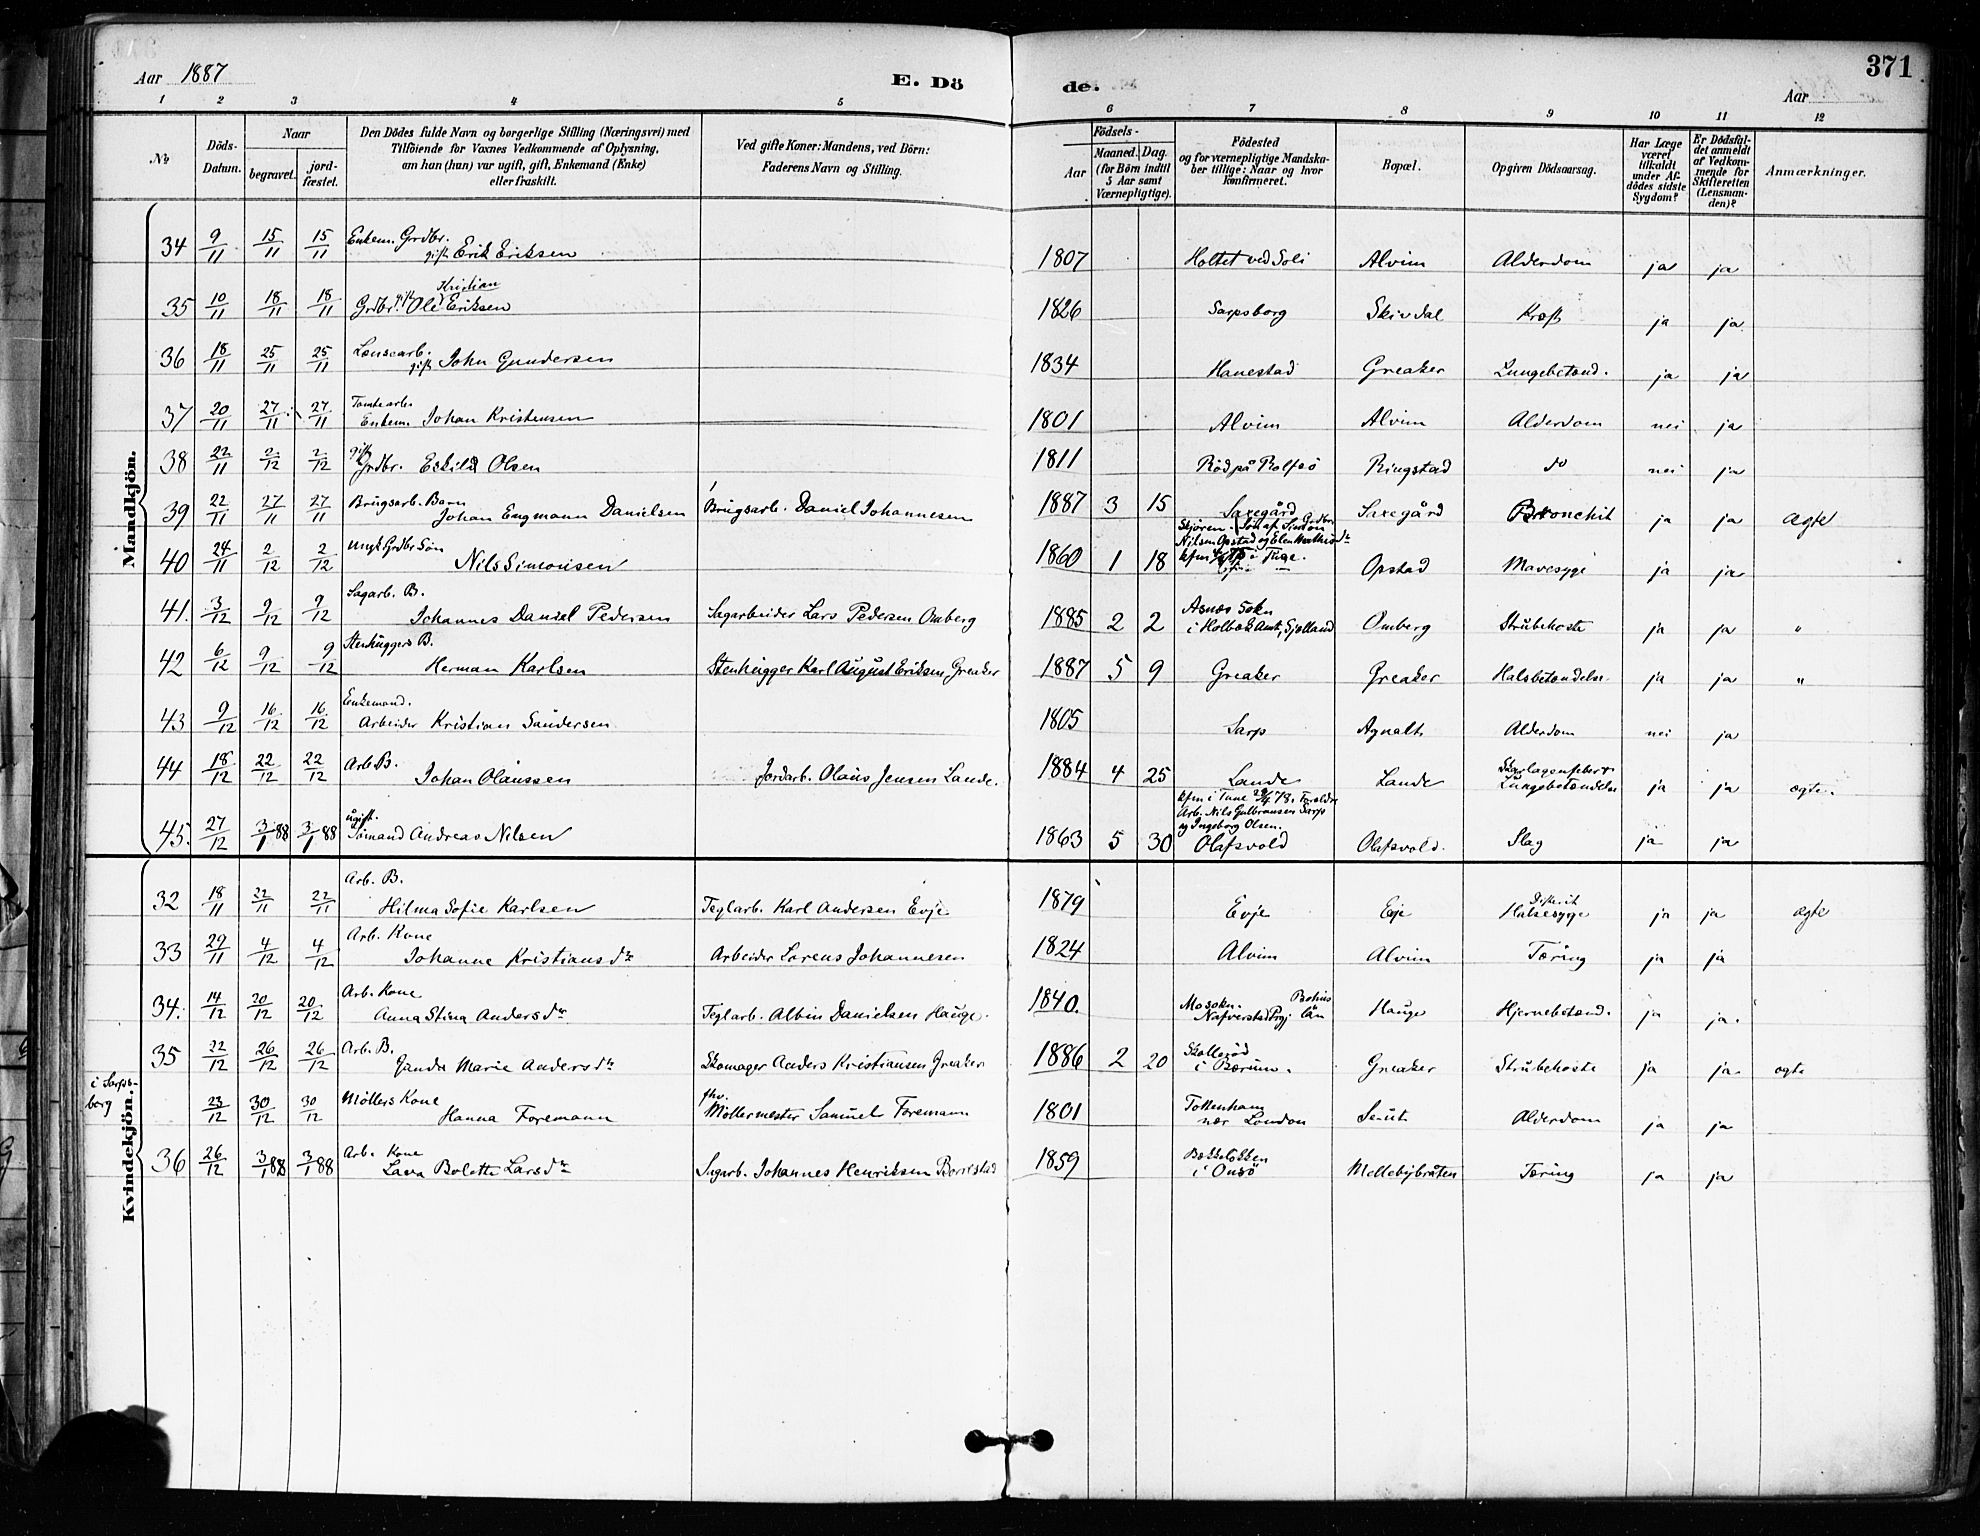 371
Aar 1887
E. Dö
de.
Aar
1 2 3 4 5 6 7 8 9 10 11 12
No
Döds-Datum.
Naar
begravet.
jord-fæstet.
Den Dödes fulde Navn og borgerlige Stilling (Næringsvei) med
Tilföiende for Voxnes Vedkommende af Oplysning,
om han (hun) var ugift, gift, Enkemand (Enke)
eller fraskilt.
Ved gifte Koner: Mandens, ved Börn:
Faderens Navn og Stilling.
Födsels-
Aar
Maaned. Dag.
(for Börn indtil
5 Aar samt
Værnepligtige).
Födested
og for værnepligtige Mandska-
ber tillige: Naar og hvor
konfirmeret.
Bopæl.
Opgiven Dödsaarsag.
Har Læge
været
tilkaldt
under Af-
dödes sidste
Sygdom?
Er Dödsfal-
det anmeldt
af Vedkom-
mende for
Skifteretten
(Lensman-
den)?
Anmærkninger.
Mandkjön.
34 9/11 15/11 15/11 Enkem. Grdbr. gift Erik Eriksen 1807 Holtet ved Soli Alvim Alderdom ja ja
35 10/11 18/11 18/11 Grdbr. gift Ole Kristian Eriksen 1826 Sarpsborg Skivdal Kræft ja ja
36 18/11 25/11 25/11 Lensearb. gift John Gundersen 1834 Hanestad Greaker Lungebetænd. ja ja
37 20/11 27/11 27/11 Tomtearb. Enkem. Johan Kristensen 1801 Alvim Alvim Alderdom nei ja
38 22/11 2/12 2/12 gift Grdbr. Eskild Olsen 1811 Röd på Rolfsö Ringstad do nei ja
39 22/11 27/11 27/11 Brugsarb. Barn Johan Engmann Danielsen Brugsarb. Daniel Johannesen 1887 3 15 Saxegård Saxegård Bronchit ja ja ægte
40 24/11 2/12 2/12 ungk Grdbr Søn Nils Simonsen 1860 1 18 Skjören. Søn af Grdbr Simon Nilsen Opstad og Elen kfm i Tune. Opstad Mavesyge ja ja
41. 3/12 9/12 9/12 Sagarb. B. Johannes Daniel Pedersen Sagarbeider Lars Pedersen Omberg 1885 2 2 Asnæs Sokn i Holbæk Amt, Sjælland Omberg Strubehoste ja ja "
42 6/12 9/12 9/12 Stenhuggers B. Herman Karlsen Stenhugger Karl August Eriksen, Greaker 1887 5 9 Greaker Greaker Halsbetændelse ja ja "
43 9/12 16/12 16/12 Enkemand. Arbeider Kristian Sandersen 1805 Sarp Agnalt Alderdom nei ja
44 18/12 22/12 22/12 Arb B. Johan Olaussen Jordarb. Olaus Jensen Lande. 1884 4 25 Lande Lande Skarlagensfeber + Lungebetændelse ja ja ægte.
45. 27/12 3/1 88 3/1 88 ugift. Sömand Andreas Nilsen 1863 5 30 kfm i Tune 78. Forældre Arb. Nils Gulbransen Sarp og Ingeborg Olsen. Olafsvold Olafsvold. Slag ja ja
Kvindekjön.
32 18/11 22/11 22/11 Arb. B. Hilma Sofie Karlsen Teglarb. Karl Andersen Evje 1879 Evje Evje Difterit Halsesyge ja ja ægte
33 29/11 4/12 4/12 Arb. Kone Johanne Kristiansdtr Arbeider Lorens Johannesen 1824 Alvim Alvim Tæring ja ja
34. 14/12 20/12 20/12 Arb. Kone Anna Stina Andersdtr Teglarb. Albin Danielsen Hauge. 1840. Mo sokn. Nafverstad Prgj Bohus län Hauge Hjernebetænd. ja ja.
35 22/12 26/12 26/12 Arb. B. Ganda Marie Andersdtr Skomager Anders Kristiansen Greaker 1886 2 20 Skollerød i Bærum. Greaker Strubehoste ja ja. ægte
i Sarps-
borg 23/12 30/12 30/12 Möllers Kone Hanna Foremann fhv. Möllermester Samuel Foremann 1801 Tottenham nær London Senut Alderdom ja ja
36 26/12 3/1 88 3/1 88 Arb. Kone Lava Bolette Larsdtr Sagarb. Johannes Henriksen Borrestad 1859 Bækkeløkken i Onsö Mellebybråten Tæring ja ja